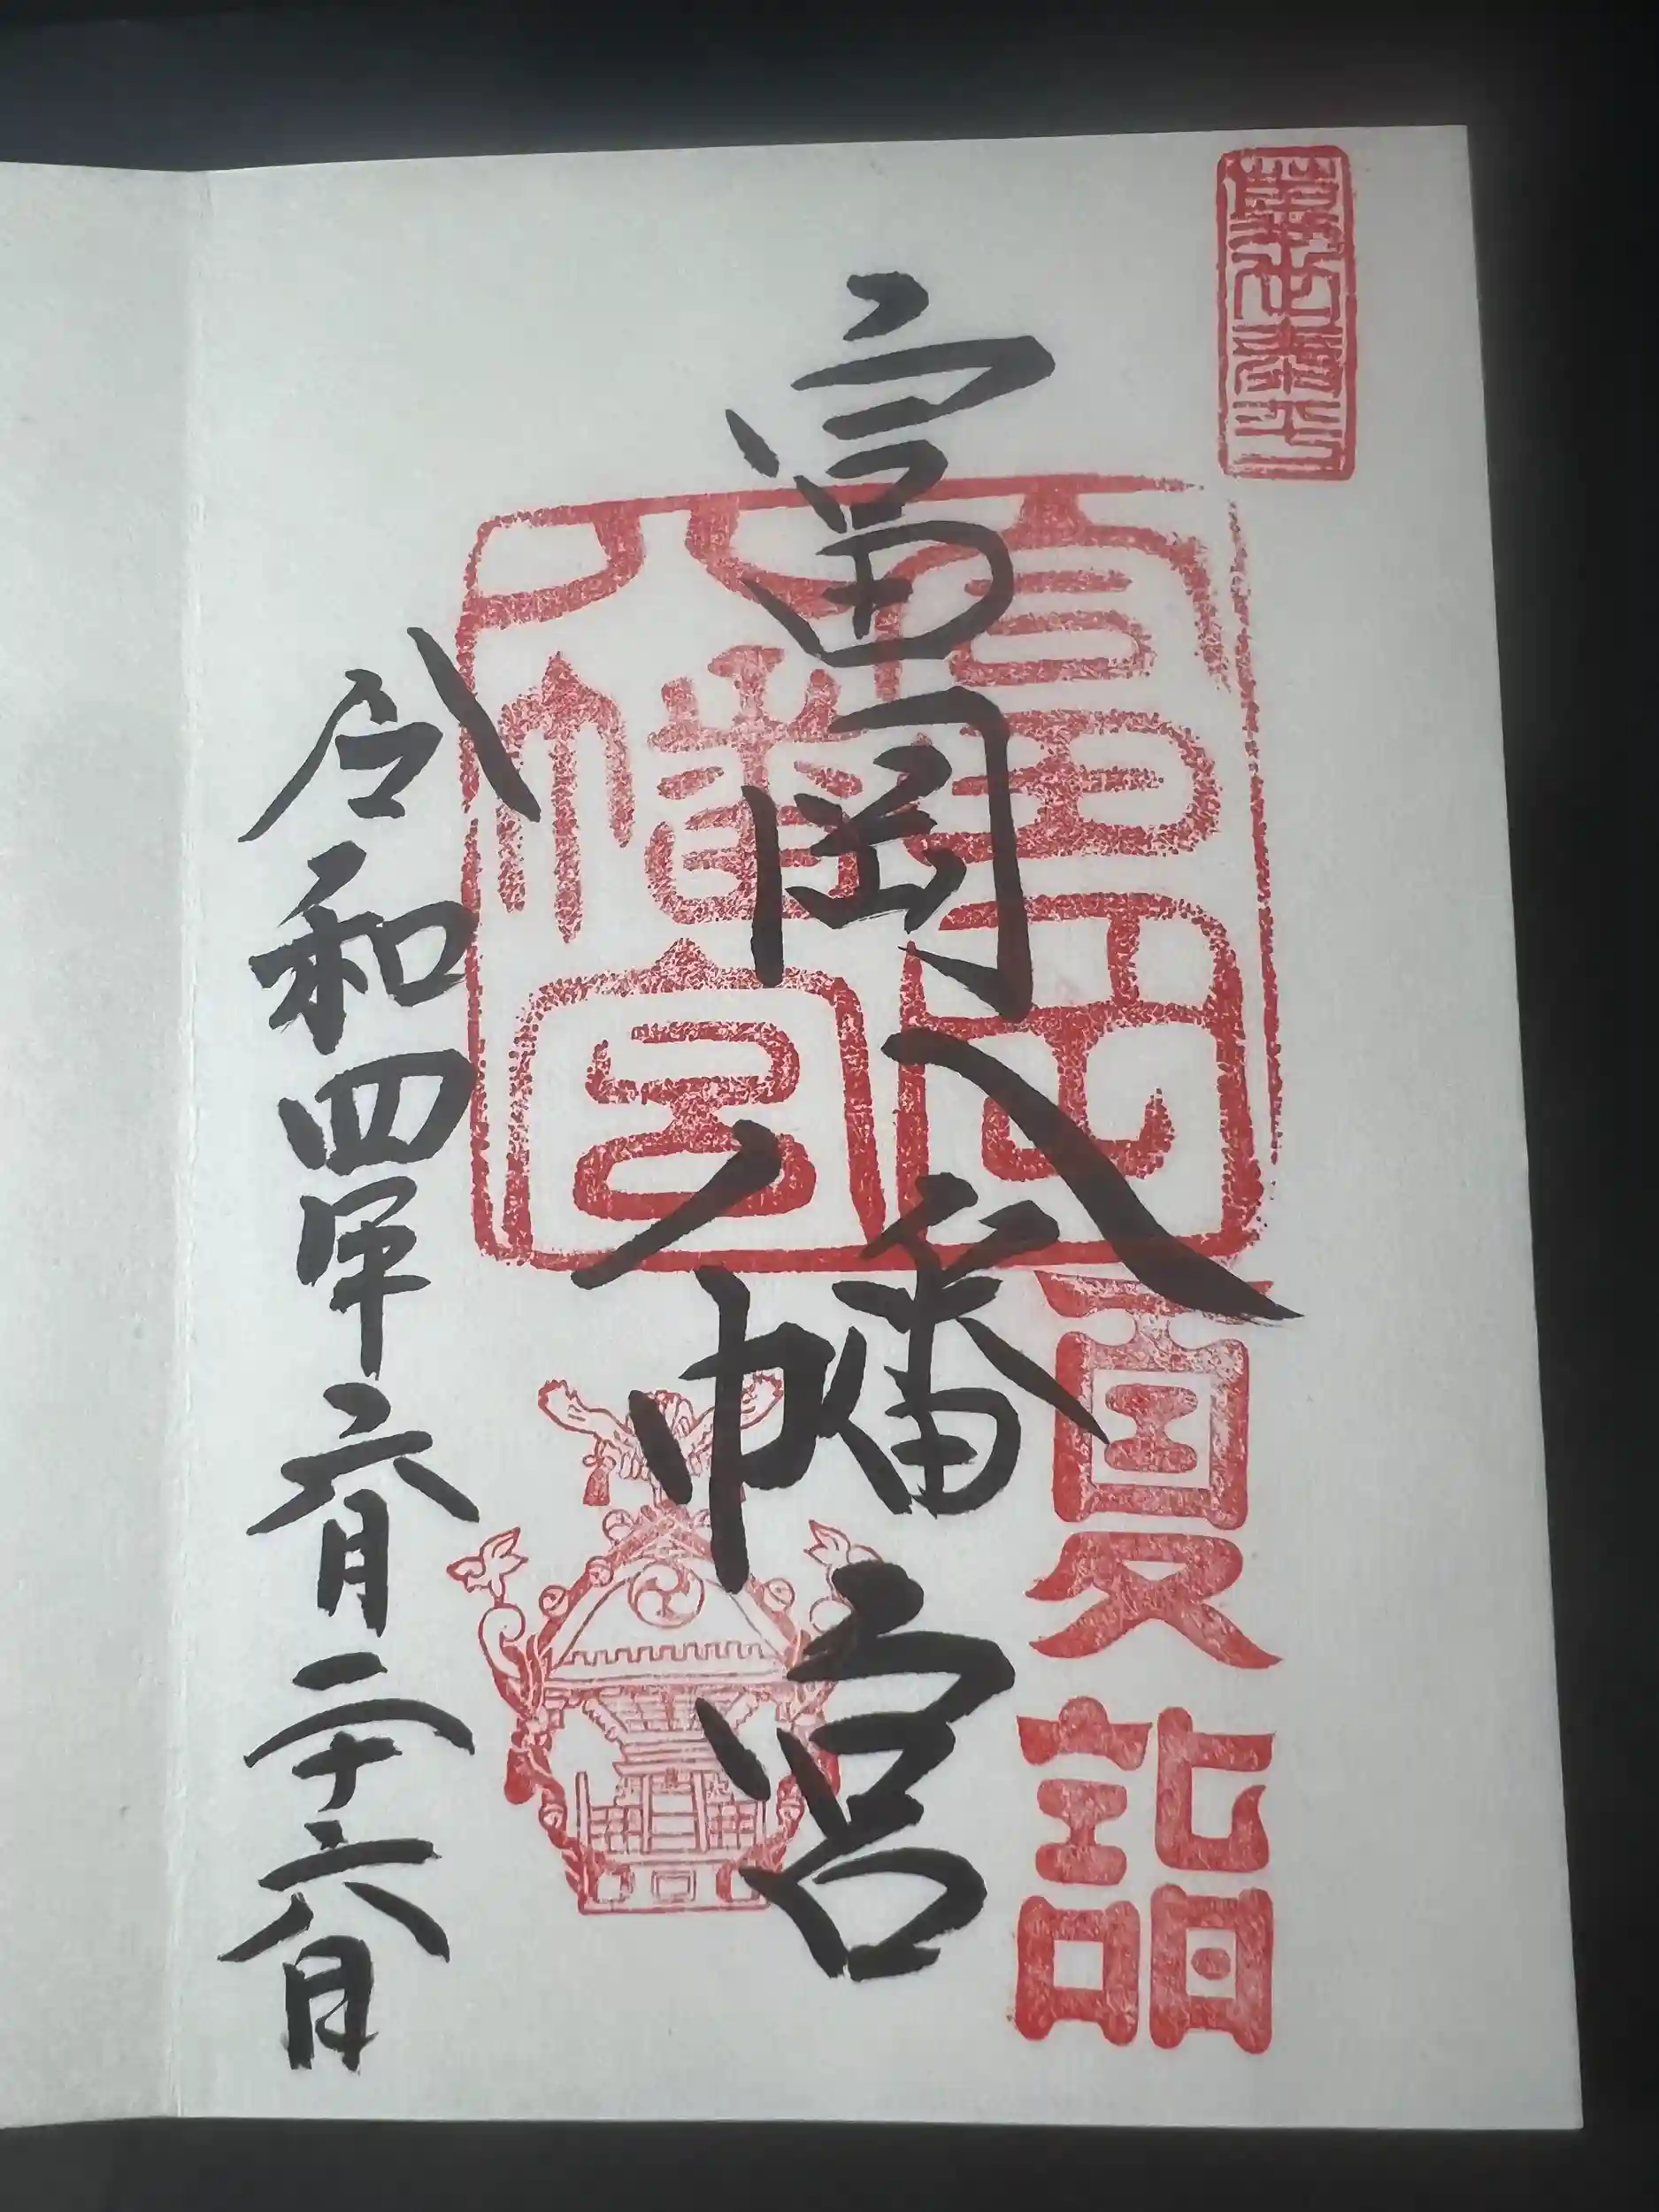 夏詣
富岡八幡宮
富岡
八幡宮
令和四年六月二十六日